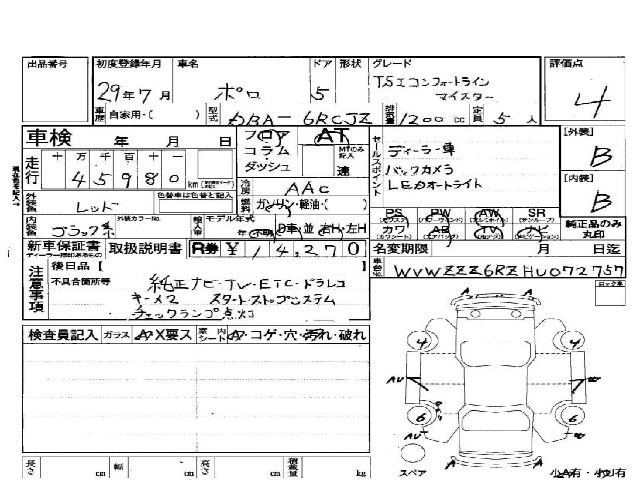 出品番号 初度登録年月 車名 ドア 形状 グレード 評価点
29年7月 ポロ 5 TSIコンフォートライン
マイスター 4
車歴 自家用・( ) 型式 DBA-6RCJZ 排気量 1200 cc 定員 5 人
車検 年 月 日 フロア AT セールスポイント ディーラー車 [外装]
走行 十 万 千 百 十 コラム MTのみ記入 バックカメラ B
45980 km ダッシュ 速 LEDオートライト [内装]
冷房 AAC B
外装色 レッド 色替車は色替と記入 燃料 ガソリン・軽油・( ) PS PW AW SR
内装色 ブラック系 外装カラーNo. 輸入車 モデル年式 カワ AB TV ナビ 純正品のみ丸印
年 (不明) D車 並 右H・左H
新車保証書 取扱説明書 R券 ¥14,270 名変期限 月 日迄
後日品 [ ] 車台No. WVWZZZ6RZHU072757
注意事項 不具合箇所等 純正ナビ・TV・ETC・ドラレコ
キー×2 スタートストップシステム
チェックランプ点灯
検査員記入 ガラス A・X要ス 室内シート A・コゲ・穴・汚れ・破れ
A
4 4
AU
6 6
A
長さ cm 幅 cm 高さ cm 積載量 kg スペア 小A有・小凹有